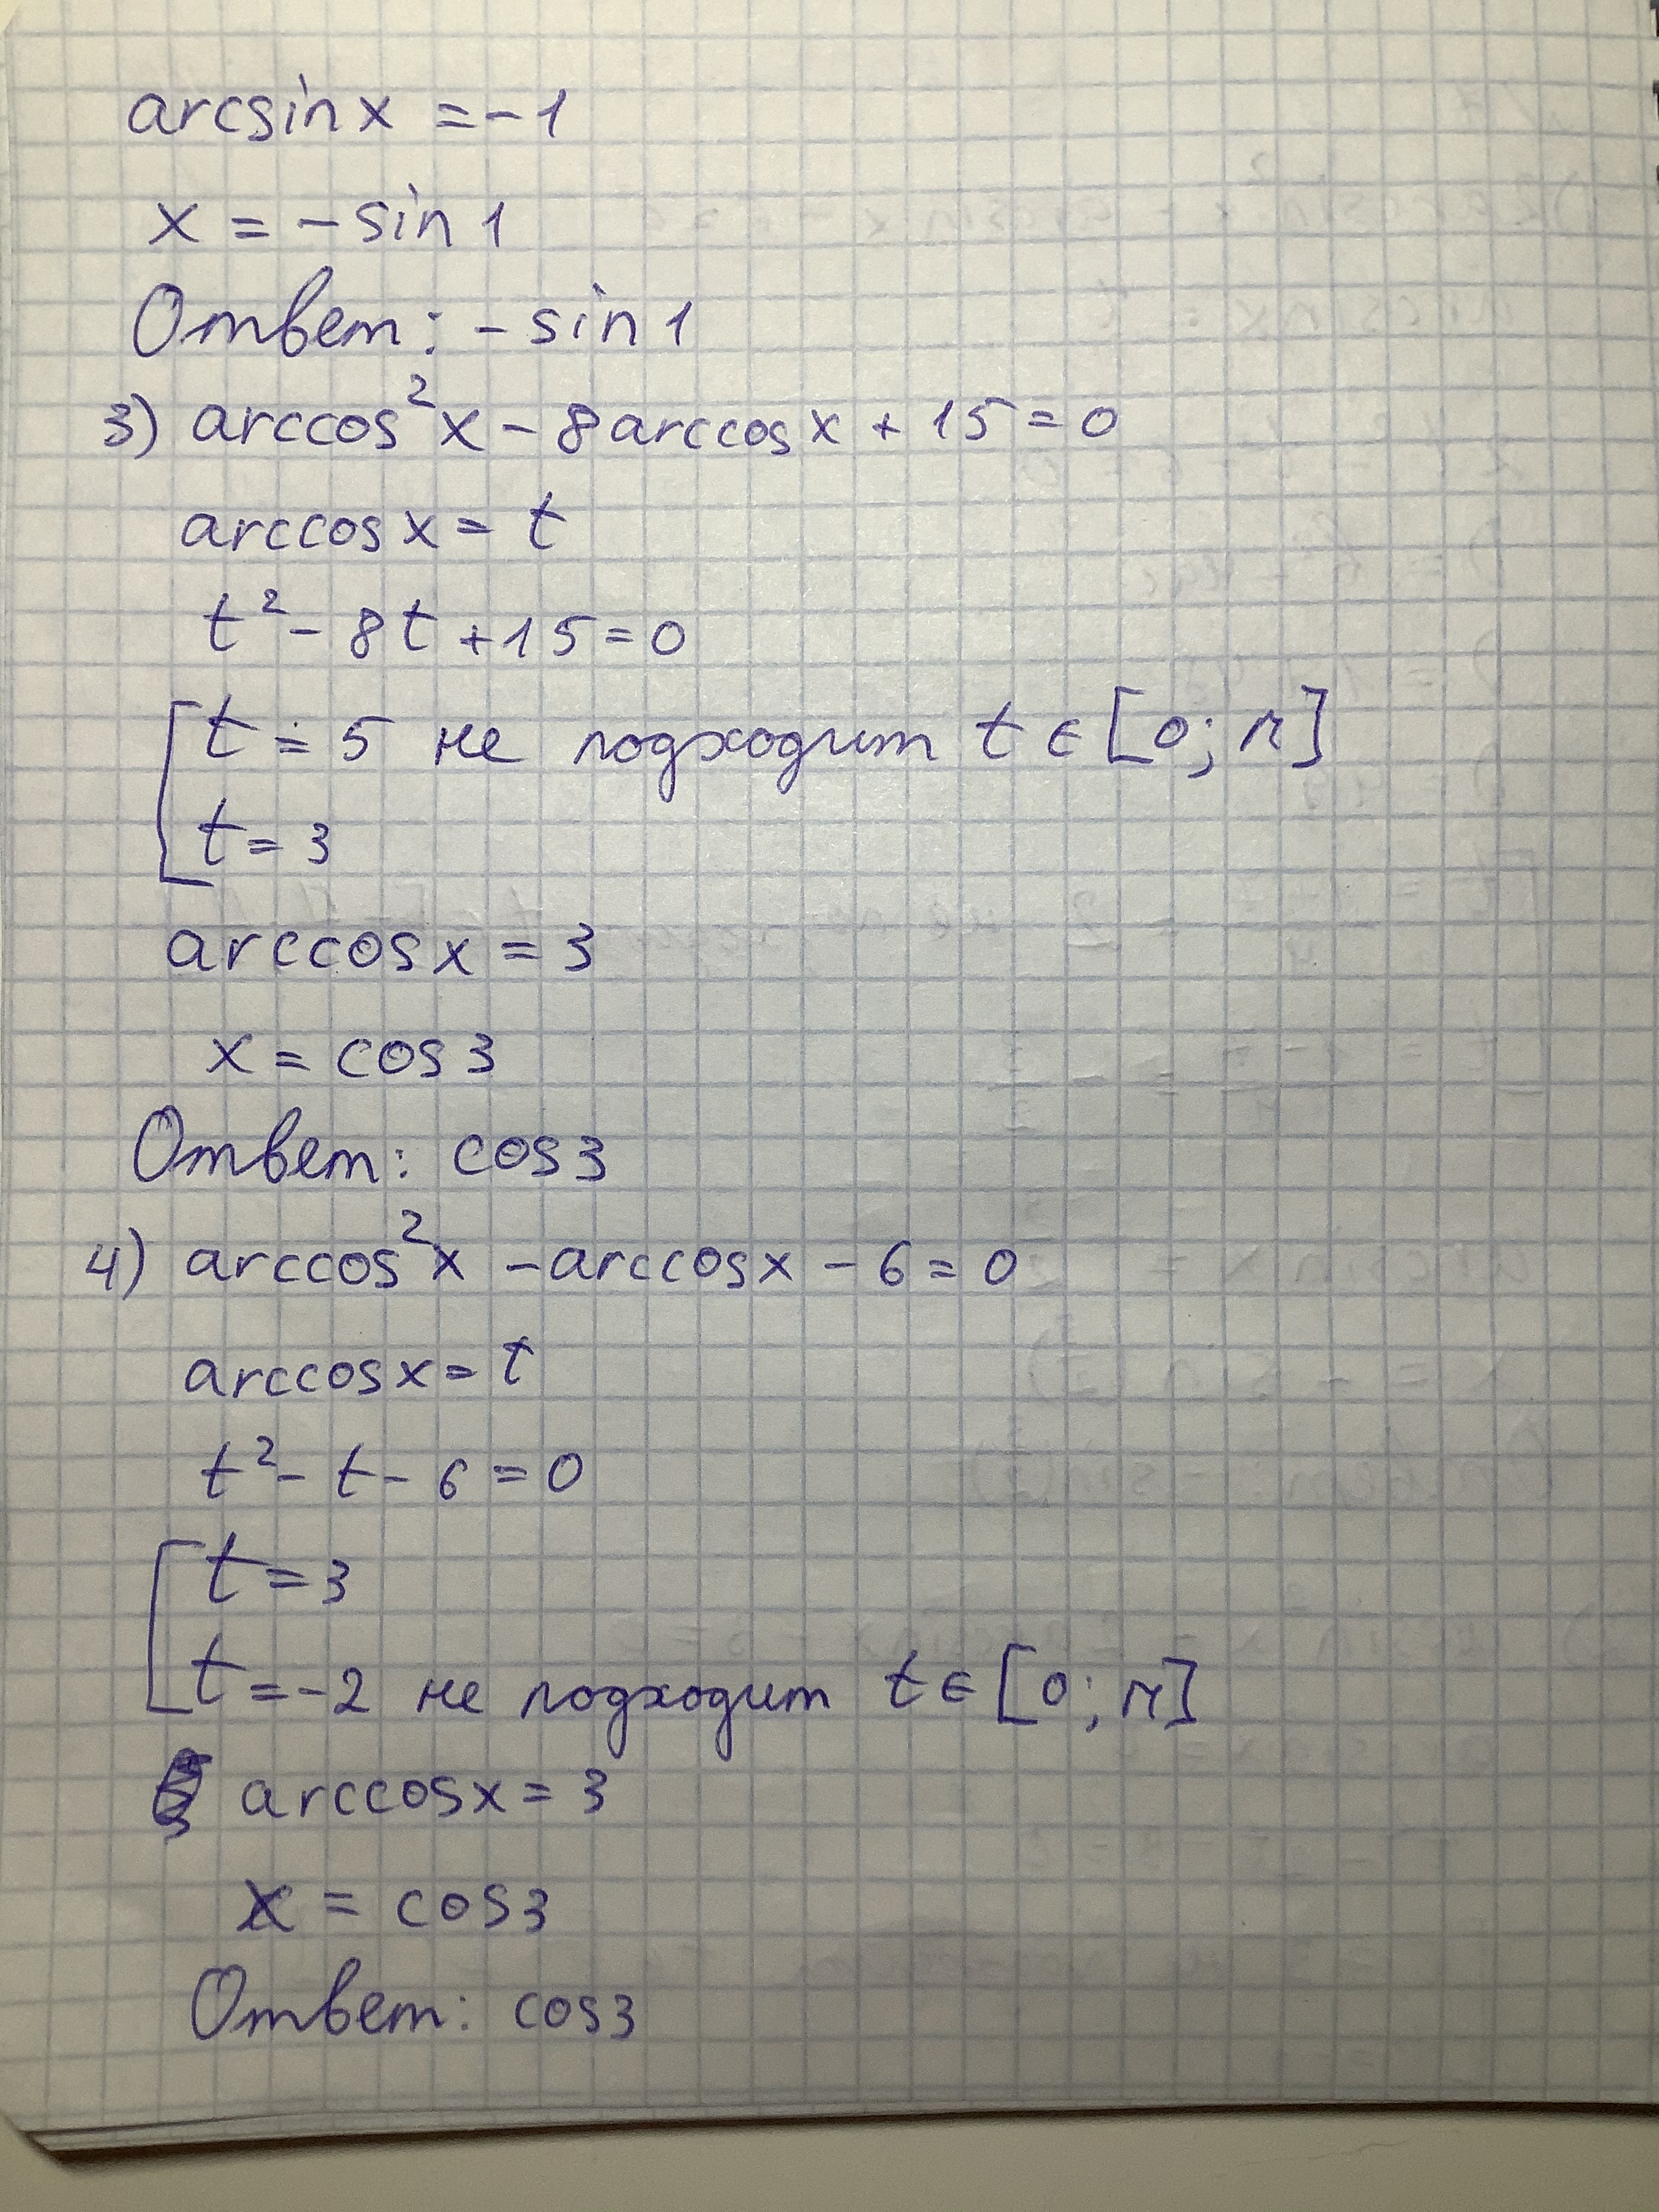 arcsin x = -1
x = - sin 1
Ответ: - sin 1
3) arccos²x - 8 arccos x + 15 = 0
arccos x = t
t² - 8t + 15 = 0
t = 5 не подходит t ∈ [0; π]
t = 3
arccos x = 3
x = cos 3
Ответ: cos 3
4) arccos²x - arccos x - 6 = 0
arccos x = t
t² - t - 6 = 0
t = 3
t = -2 не подходит t ∈ [0; π]
arccos x = 3
x = cos 3
Ответ: cos 3